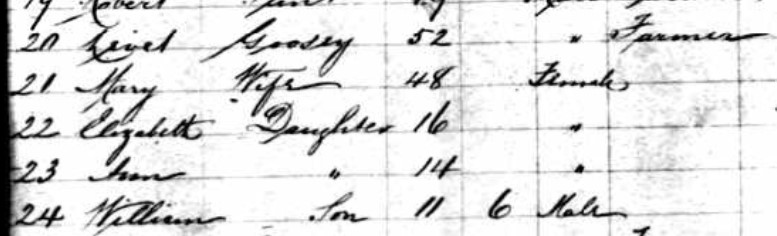 19 Robert
20 Levet Goosey 52 " Farmer
21 Mary Wife 48 Female
22 Elizabeth Daughter 16 "
23 Ann " 14 "
24 William Son 11 6 Male